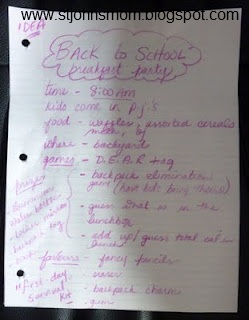 www.stjohnsmom.blogspot.com
IDEA
BACK to SCHOOL
breakfast party
time - 8:00 AM
kids come in P.J.'s
food - waffles, assorted cereals
milk,
where - backyard
games - D.E.A.R tag
- backpack elimination
game (have kids bring theirs)
- guess what is in the
lunchbox
- add up/guess total cal. in
lunch
prizes
- water bottles
- locker mirror
- backpack tag
- book
favours - fancy pencils
"First-day
Survival
Kit"
- eraser
- backpack charm
- gum